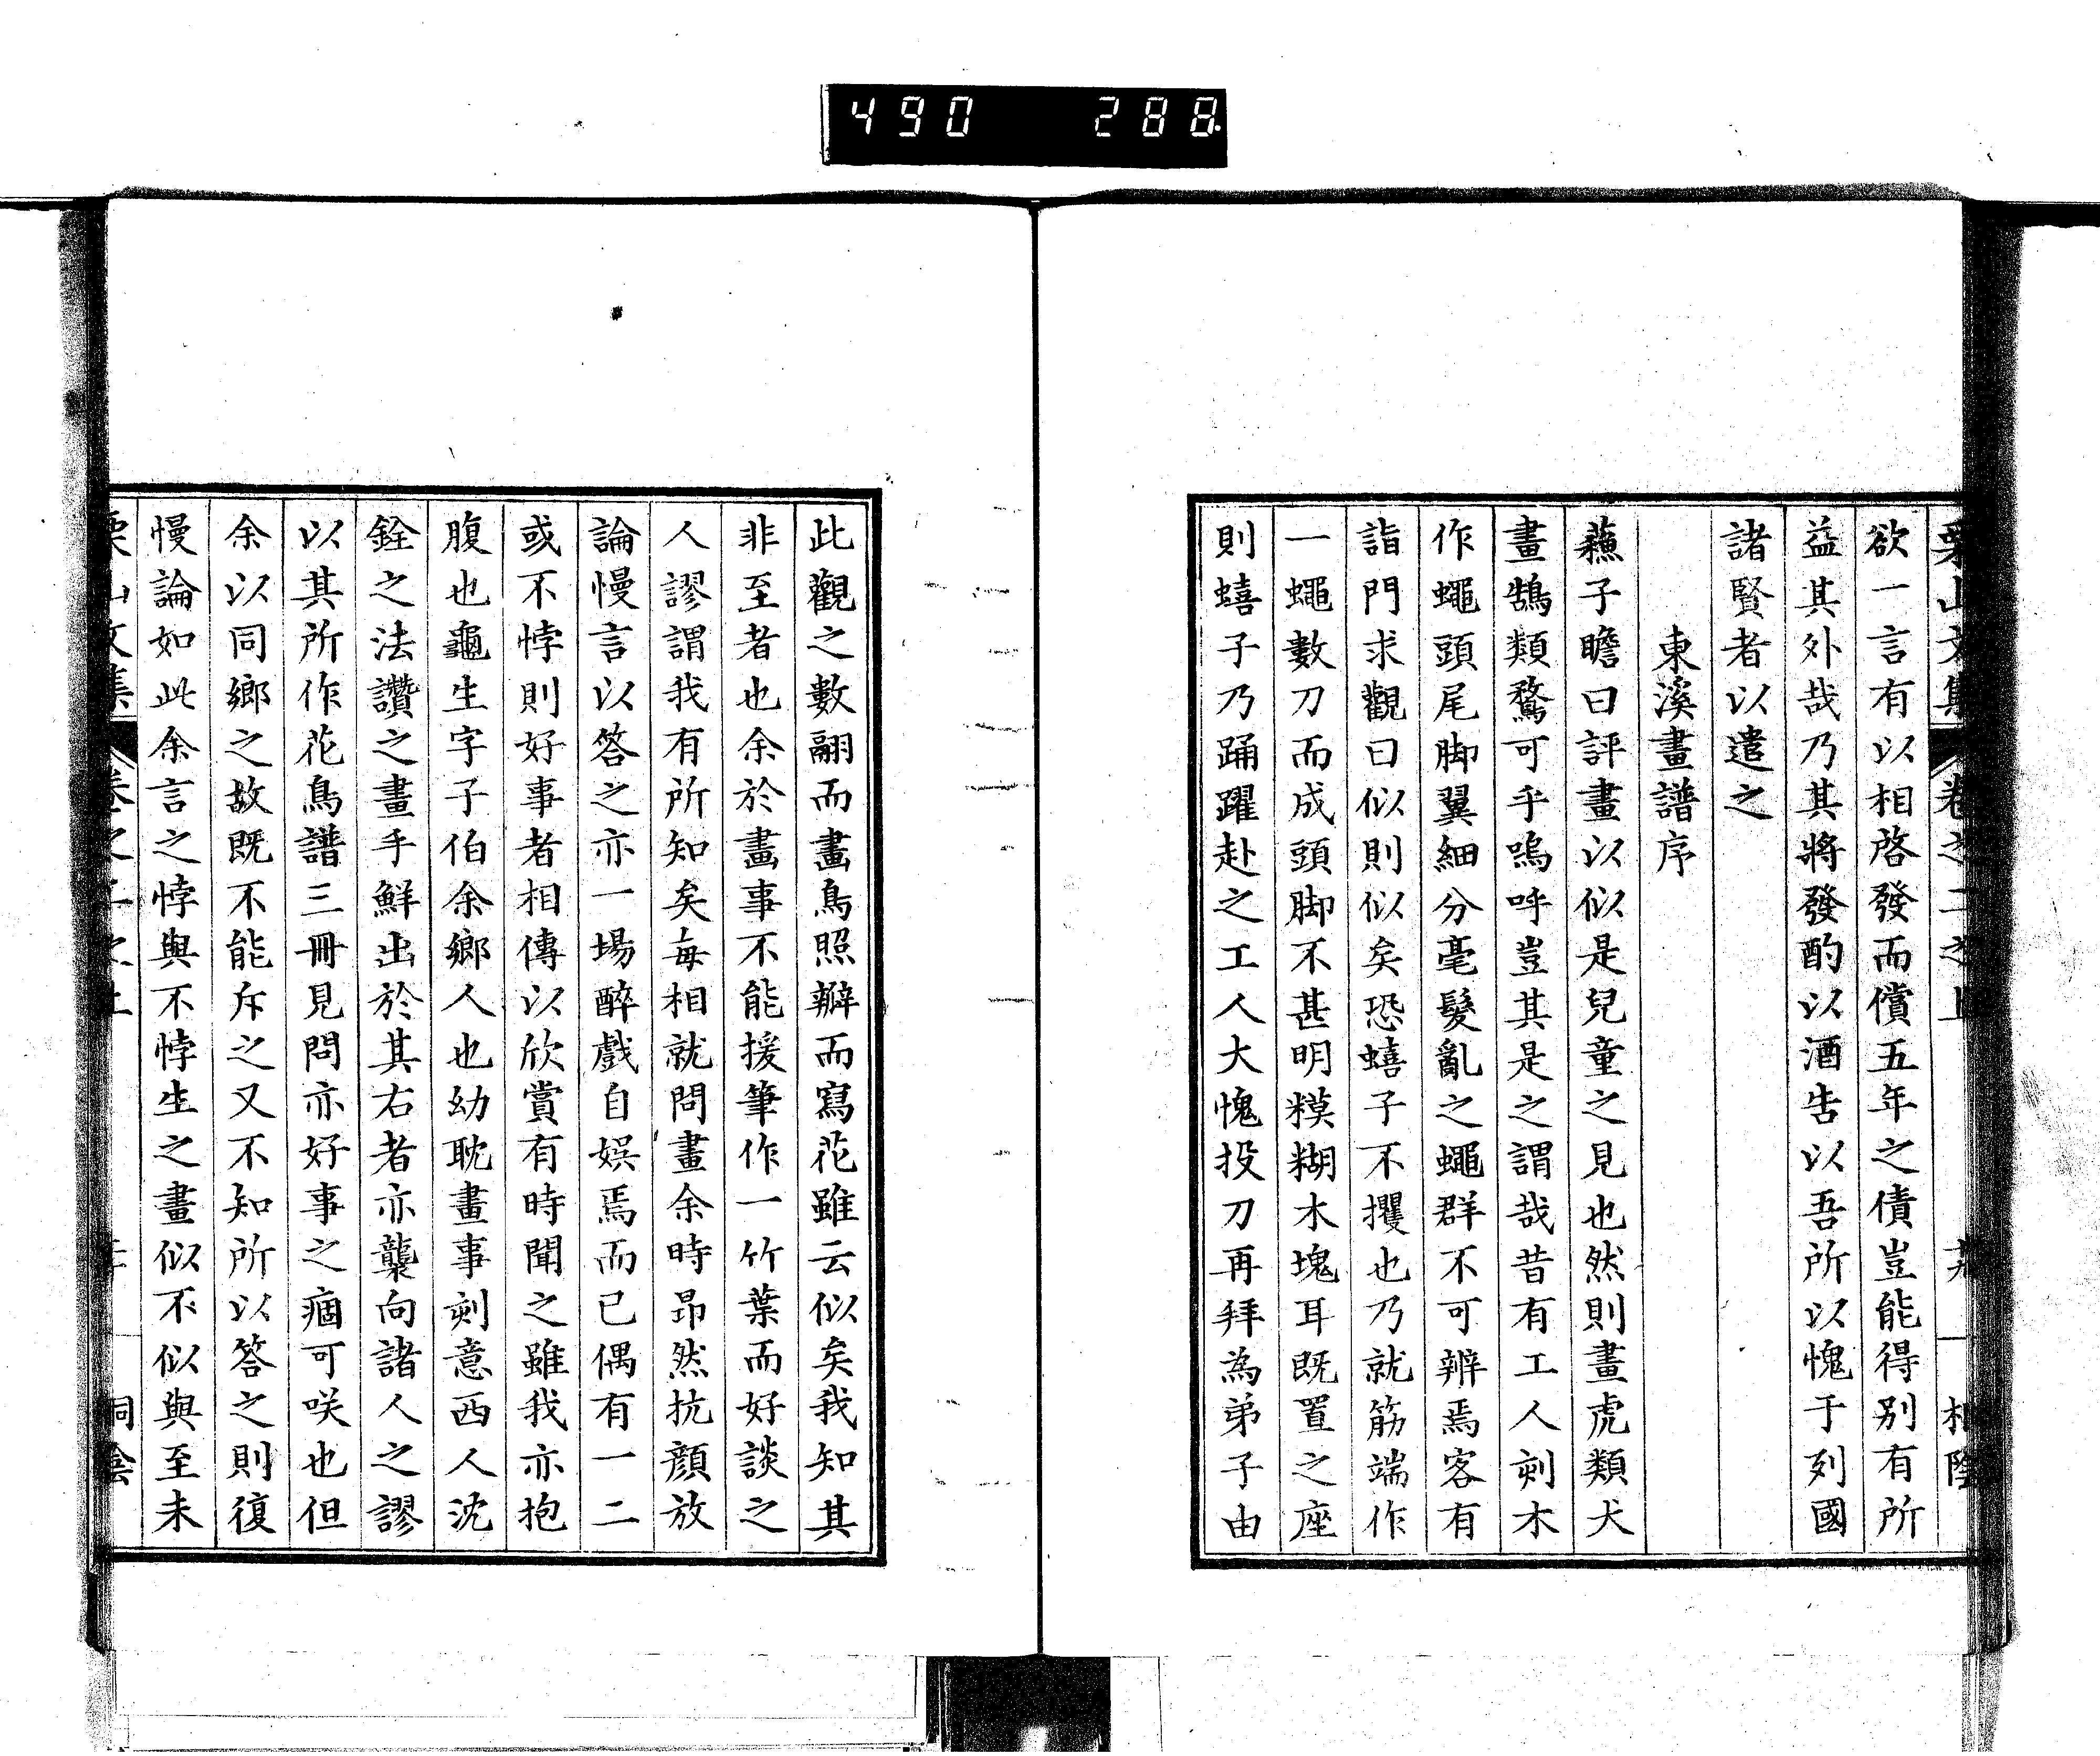 490 288
栗山文集 卷之二之上
欲一言有以相啓發而償五年之債豈能得別有所
益其外哉乃其將發酌以酒告以吾所以愧于列國
諸賢者以遣之
東溪畫譜序
蘓子瞻曰評畫以似是兒童之見也然則畫虎類犬
畫鵠類鶩可乎嗚呼豈其是之謂哉昔有工人刻木
作蠅頭尾脚翼細分毫髮亂之蠅群不可辨焉客有
詣門求觀曰似則似矣恐蟢子不攫也乃就筋端作
一蠅數刀而成頭脚不甚明糢糊木塊耳既置之座
則蟢子乃踊躍赴之工人大愧投刀再拜為弟子由
此觀之數翮而畫鳥照瓣而寫花雖云似矣我知其
非至者也余於畫事不能援筆作一竹葉而好談之
人謬謂我有所知矣每相就問畫余時昂然抗顏放
論慢言以答之亦一場醉戲自娯焉而已偶有一二
或不悖則好事者相傳以欣賞有時聞之雖我亦抱
腹也龜生字子伯余鄉人也幼耽畫事刻意西人沈
銓之法讚之畫手鮮出於其右者亦襲向諸人之謬
以其所作花鳥譜三冊見問亦好事之痼可咲也但
余以同鄉之故既不能斥之又不知所以答之則復
慢論如此余言之悖與不悖生之畫似不似與至未
栗山文集 卷之二之上 桐陰